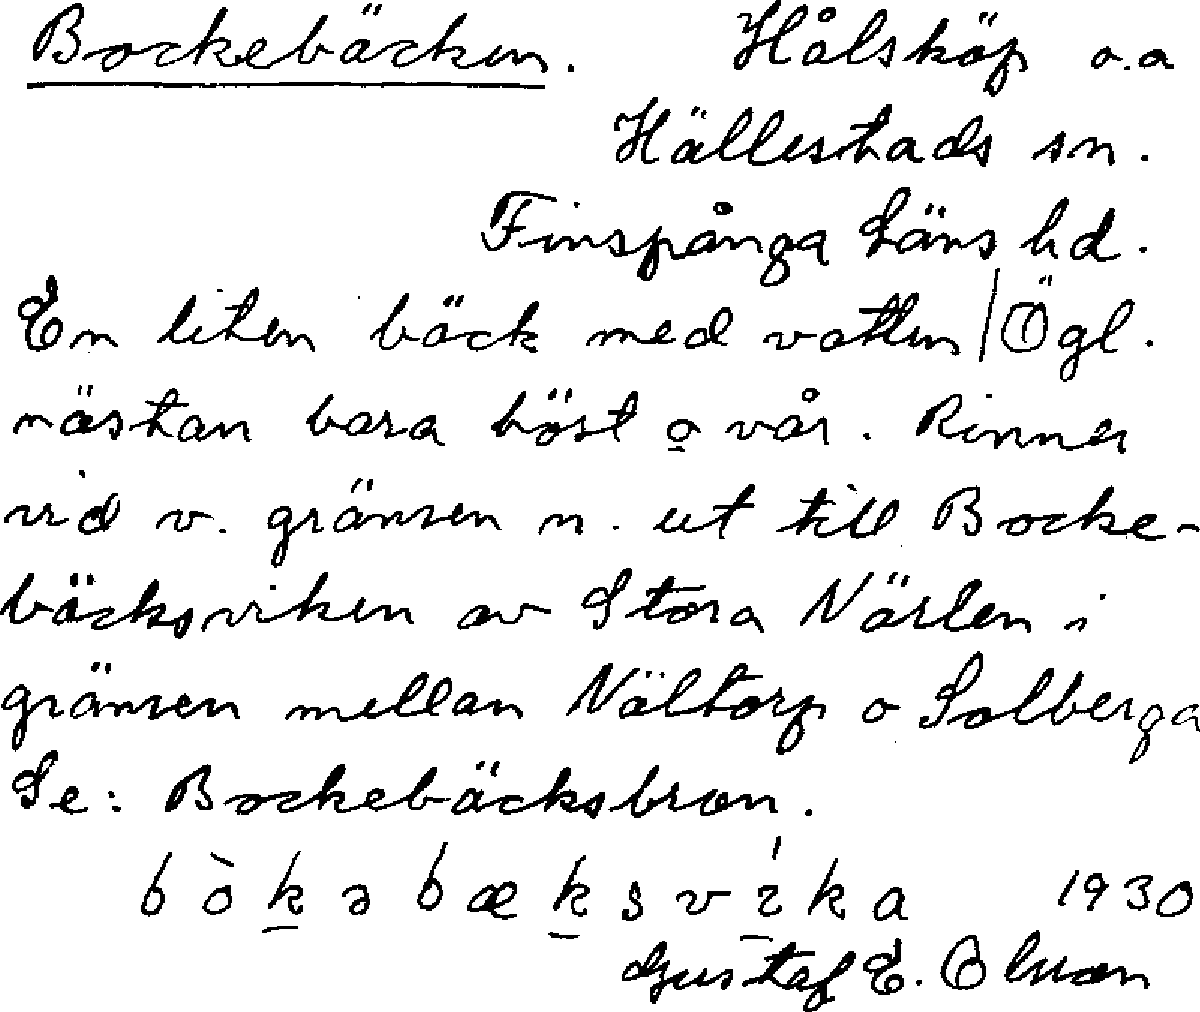 Bockebäcken. Hålsköp o.a
Hällestads sn.
Finspånga Läns hd.
En liten bäck med vatten | Ögl.
nästan bara höst o vår. Rinner
vid v. gränsen n. ut till Bocke-
bäcksviken av Stora Närlen i
gränsen mellan Nältorp o Solberga
Se: Bockebäcksbron.
bòkəbæksvíka 1930
Gustaf E. Olsson